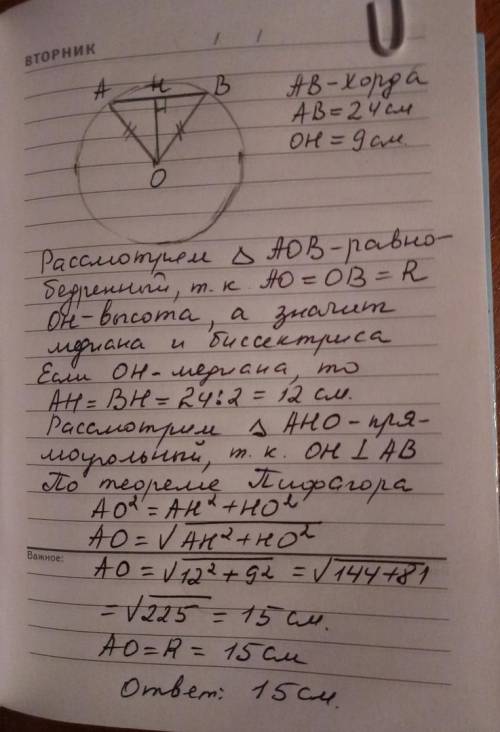 ВТОРНИК
A H B
O
AB - хорда
AB = 24 см
OH = 9 см.
Рассмотрим △ AOB - равно-
бедренный, т.к. AO = OB = R
OH - высота, а значит
медиана и биссектриса
Если OH - медиана, то
AH = BH = 24 : 2 = 12 см.
Рассмотрим △ AHO - пря-
моугольный, т.к. OH ⊥ AB
По теореме Пифагора
AO² = AH² + HO²
AO = √AH² + HO²
Важное:
AO = √12² + 9² = √144 + 81
= √225 = 15 см.
AO = R = 15 см
Ответ: 15 см.